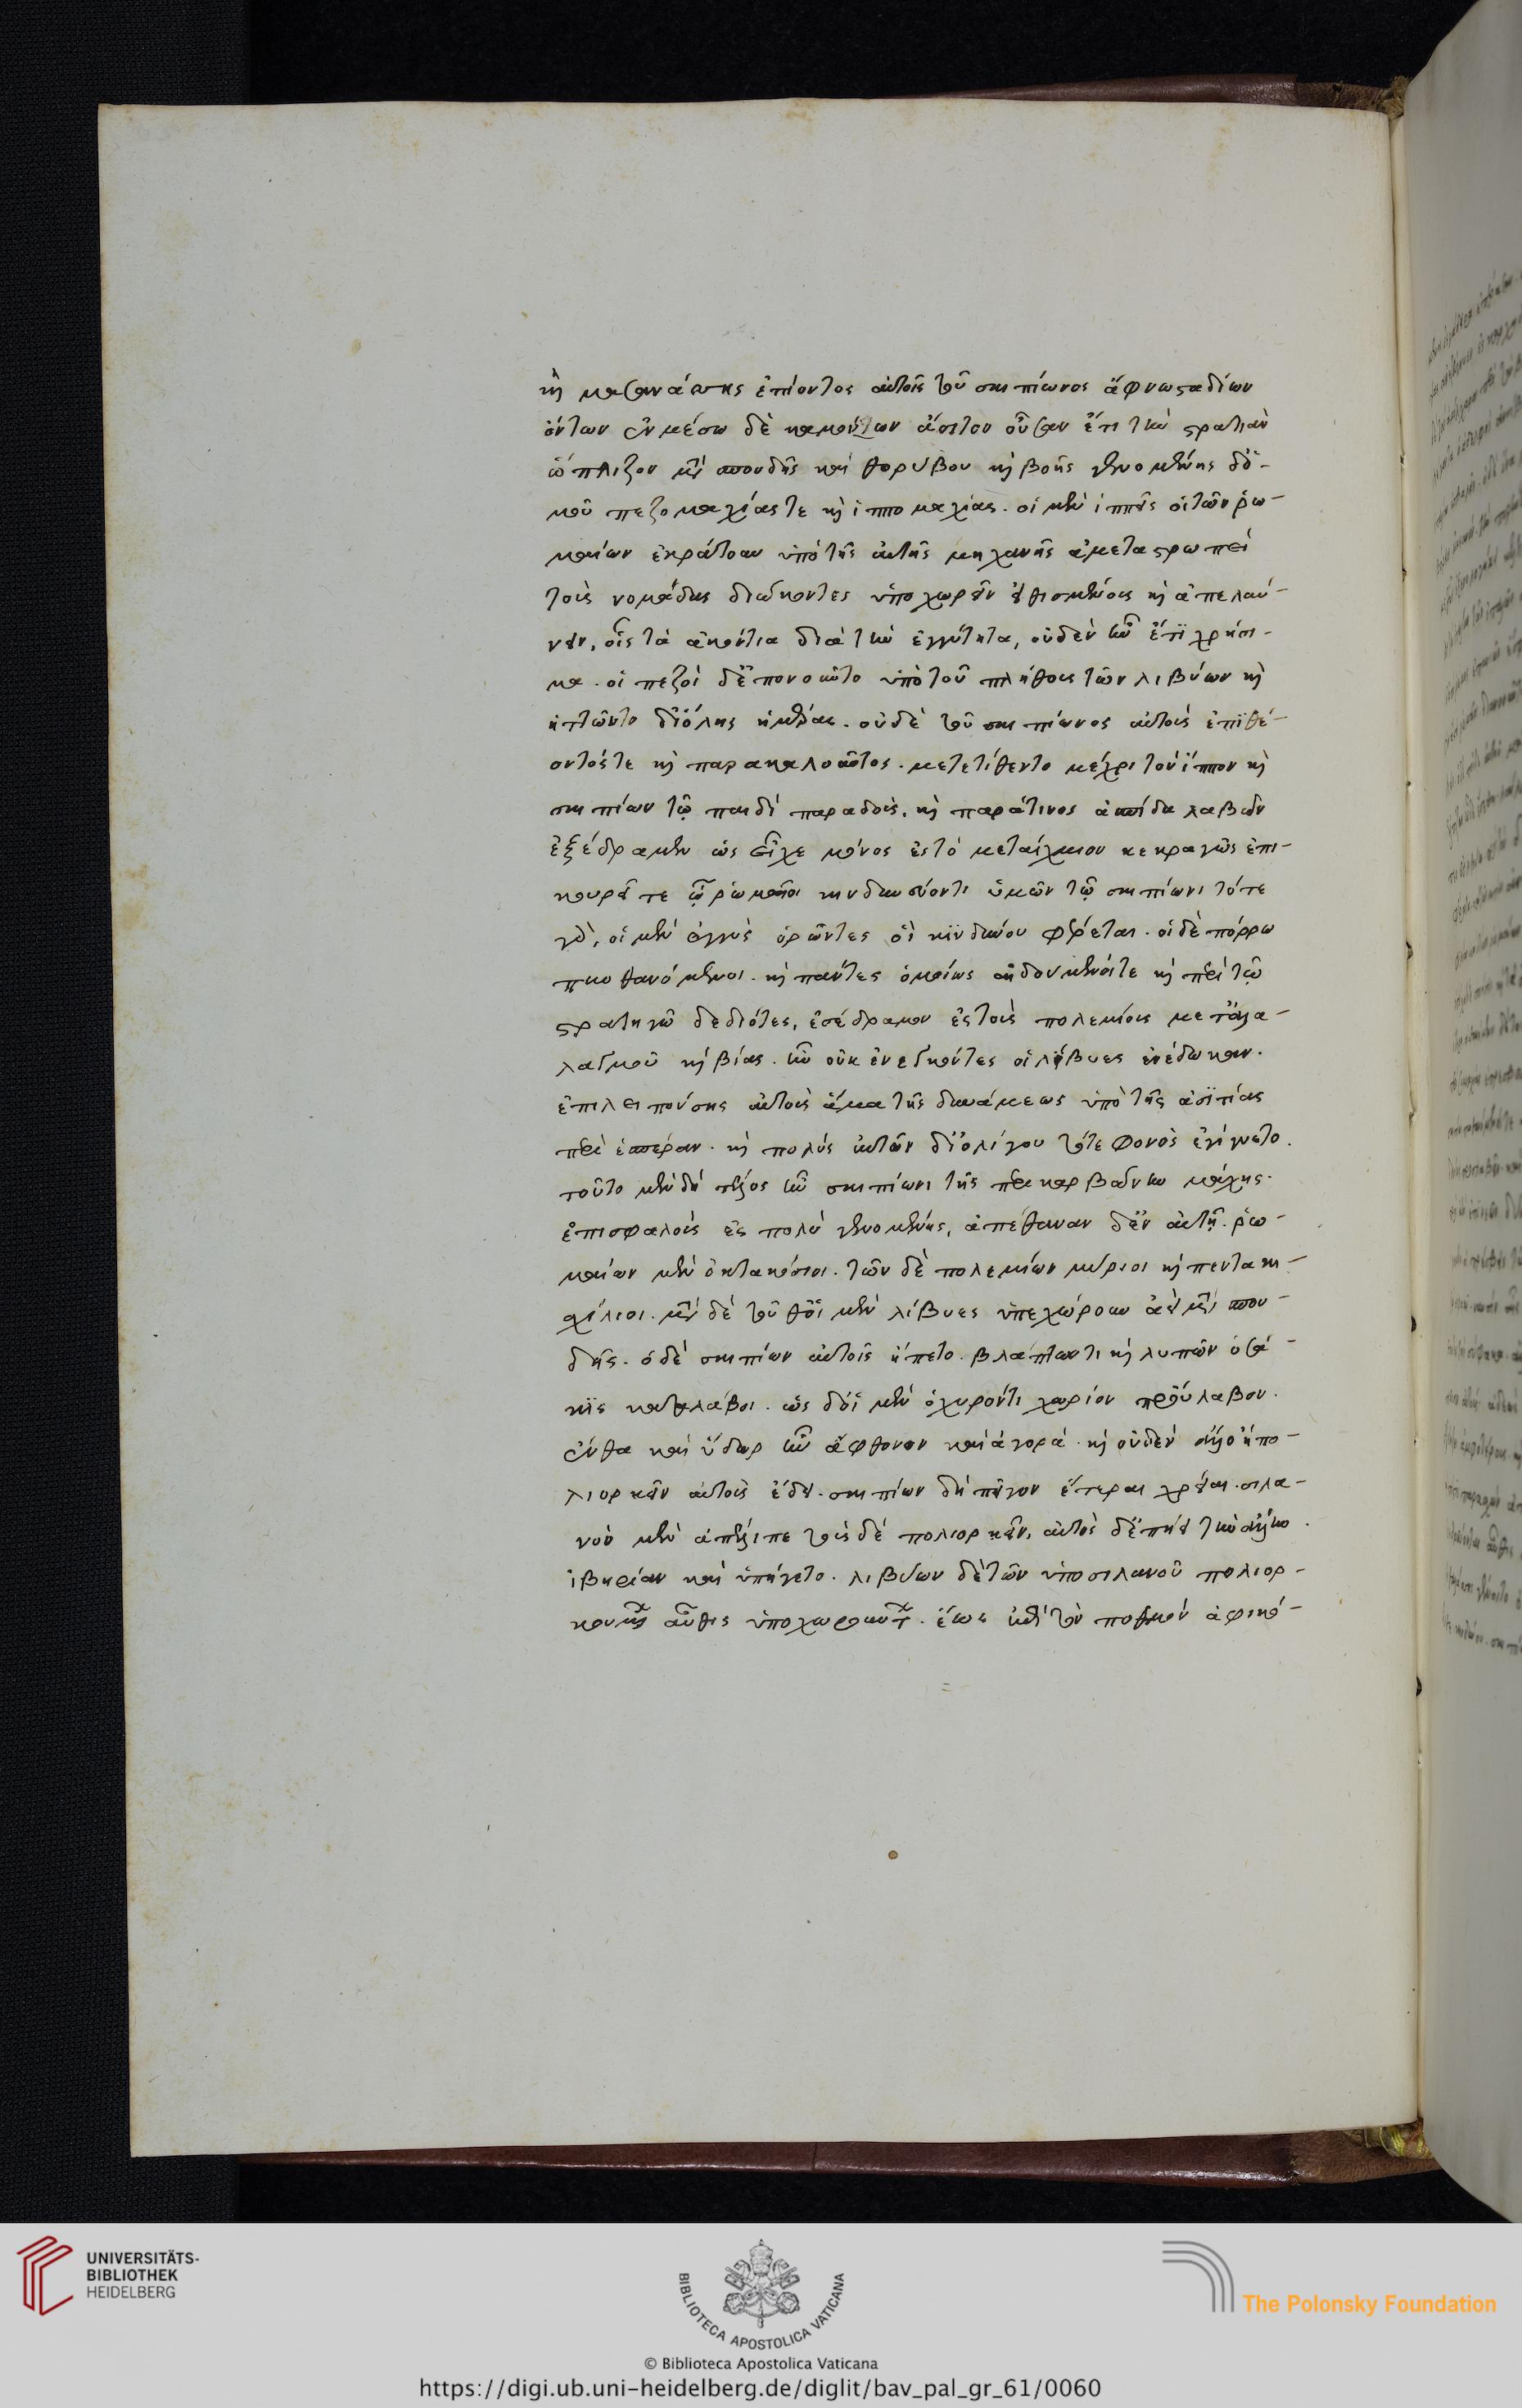 κὶ μασσανάσσης ἐπίοντος αὐτοῖς τοῦ σκιπίωνος ἄφνωσταδίων
ὄντων ἐν μέσω δὲ καμόνων ἄσιτον οὖσαν ἔτι τὴν στρατιὰν
ὥπλιζον μετὰ σπουδῆς καὶ θορύβου κὶ βοῆς γενομένης δὁ-
μοῦ πεζομαχίας τε κὶ ἱππομαχίας. οἱ μὲν ἱππεῖς οἱ τῶν ῥω-
μαίων ἐκράτουν ὑπὸ τῆς αὐτῆς μηχανῆς ἀμεταστρωπεὶ
τοὺς νομάδας διώκοντες ὑποχωρεῖν εἰθισμένους κὶ ἀπελαύ-
νειν, οἷς τὰ ἀκόντια διὰ τὴν ἐγγύτητα, οὐδὲν ἦν ἔτι χρήσι-
μα. οἱ πεζοὶ δἐπονοῦντο ὑπὸ τοῦ πλήθους τῶν λιβύων κὶ
ἡττῶντο διὅλης ἡμέρας. οὐδὲ τοῦ σκιπίωνος αὐτοὺς ἐπιθέ-
οντόςτε κὶ παρακαλοῦντος. μετετίθεντο μέχρι τὸν ἵππον κὶ
σκιπίων τῷ παιδὶ παραδοὺς. κὶ παράτινος ἀσπίδα λαβὼν
ἐξέδραμεν ὡς εἶχε μόνος ἐς τὸ μεταίχμιον κεκραγὼς ἐπι-
κουρεῖ τε ᾦ ῥωμαῖοι κινδυνεύοντι ὑμῶν τῷ σκιπίωνι τότε
γὰρ, οἱ μὲν ἐγγὺς ὁρῶντες οἷ κινδύνου φέρεται. οἱ δὲ πόρρω
πυνθανόμενοι. κὶ πάντες ὁμοίως αἰδουμενοίτε κὶ περὶ τῷ
στρατηγῷ δεδιότες, ἐσέδραμον ἐς τοὺς πολεμίους μετἀλα-
λαγμοῦ κὶ βίας. ἣν οὐκ ἐνεγκόντες οἱ λίβυες ἐνέδωκαν.
ἐπιλειπούσης αὐτοὺς ἅμα τῆς δυνάμεως ὑπὸ τῆς ἀσιτίας
περὶ ἑσπέραν. κὶ πολὺς αὐτῶν διὀλίγου τότε φονὸς ἐγίγνετο.
τοῦτο μὲν δὴ τέλος ἦν σκιπίωνι τῆς περὶ καρβαῶνην μάχης.
ἐπισφαλοὺς ἐς πολὺ γενομένης, ἀπέθανον δἐν αὐτῇ. ῥω-
μαίων μὲν ὀκτακόσιοι. τῶν δὲ πολεμίων μύριοι κὶ πεντακι-
χίλιοι. μετὰ δὲ τοῦθοἱ μὲν λίβυες ὑπεχώρουν ἀεὶ μετὰ σπου-
δῆς. ὁ δὲ σκιπίων αὐτοῖς εἵπετο. βλάπτωντι κὶ λυπῶν ὁσά-
κις καταλάβοι. ὡς δοἱ μὲν ὀχυρόντι χωρίον προύλαβον.
ἔνθα καὶ ὕδωρ ἦν ἄφθονον καὶ ἀγορὰ. κὶ οὐδὲν ἄλλοἢπο-
λιορκεῖν αὐτοὺς ἔδει. σκιπίωνα δἤπειγον ἕτεραι χρεῖαι. σιλα-
νὸν μὲν ἀπέλιπε τοὺς δὲ πολιορκεῖν. αὐτὸς δἐπῄει τὴν ἄλλην
ἰβηρίαν καὶ ὑπήγετο. λιβύων δὲ τῶν ὑποσιλανοῦ πολιορ-
κουμένων αὖθις ὑποχωρούντων. ἕως ἐπὶ τὸν πορθμὸν ἀφικό-
UNIVERSITÄTS-
BIBLIOTHEK
HEIDELBERG
BIBLIOTECA APOSTOLICA VATICANA
The Polonsky Foundation
© Biblioteca Apostolica Vaticana
https://digi.ub.uni-heidelberg.de/diglit/bav_pal_gr_61/0060